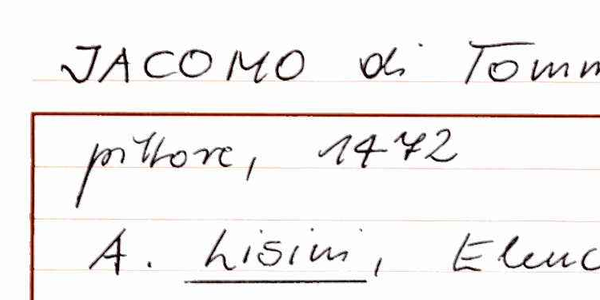 JACOMO di Tomm
pittore, 1472
A. Lisini, Elenc